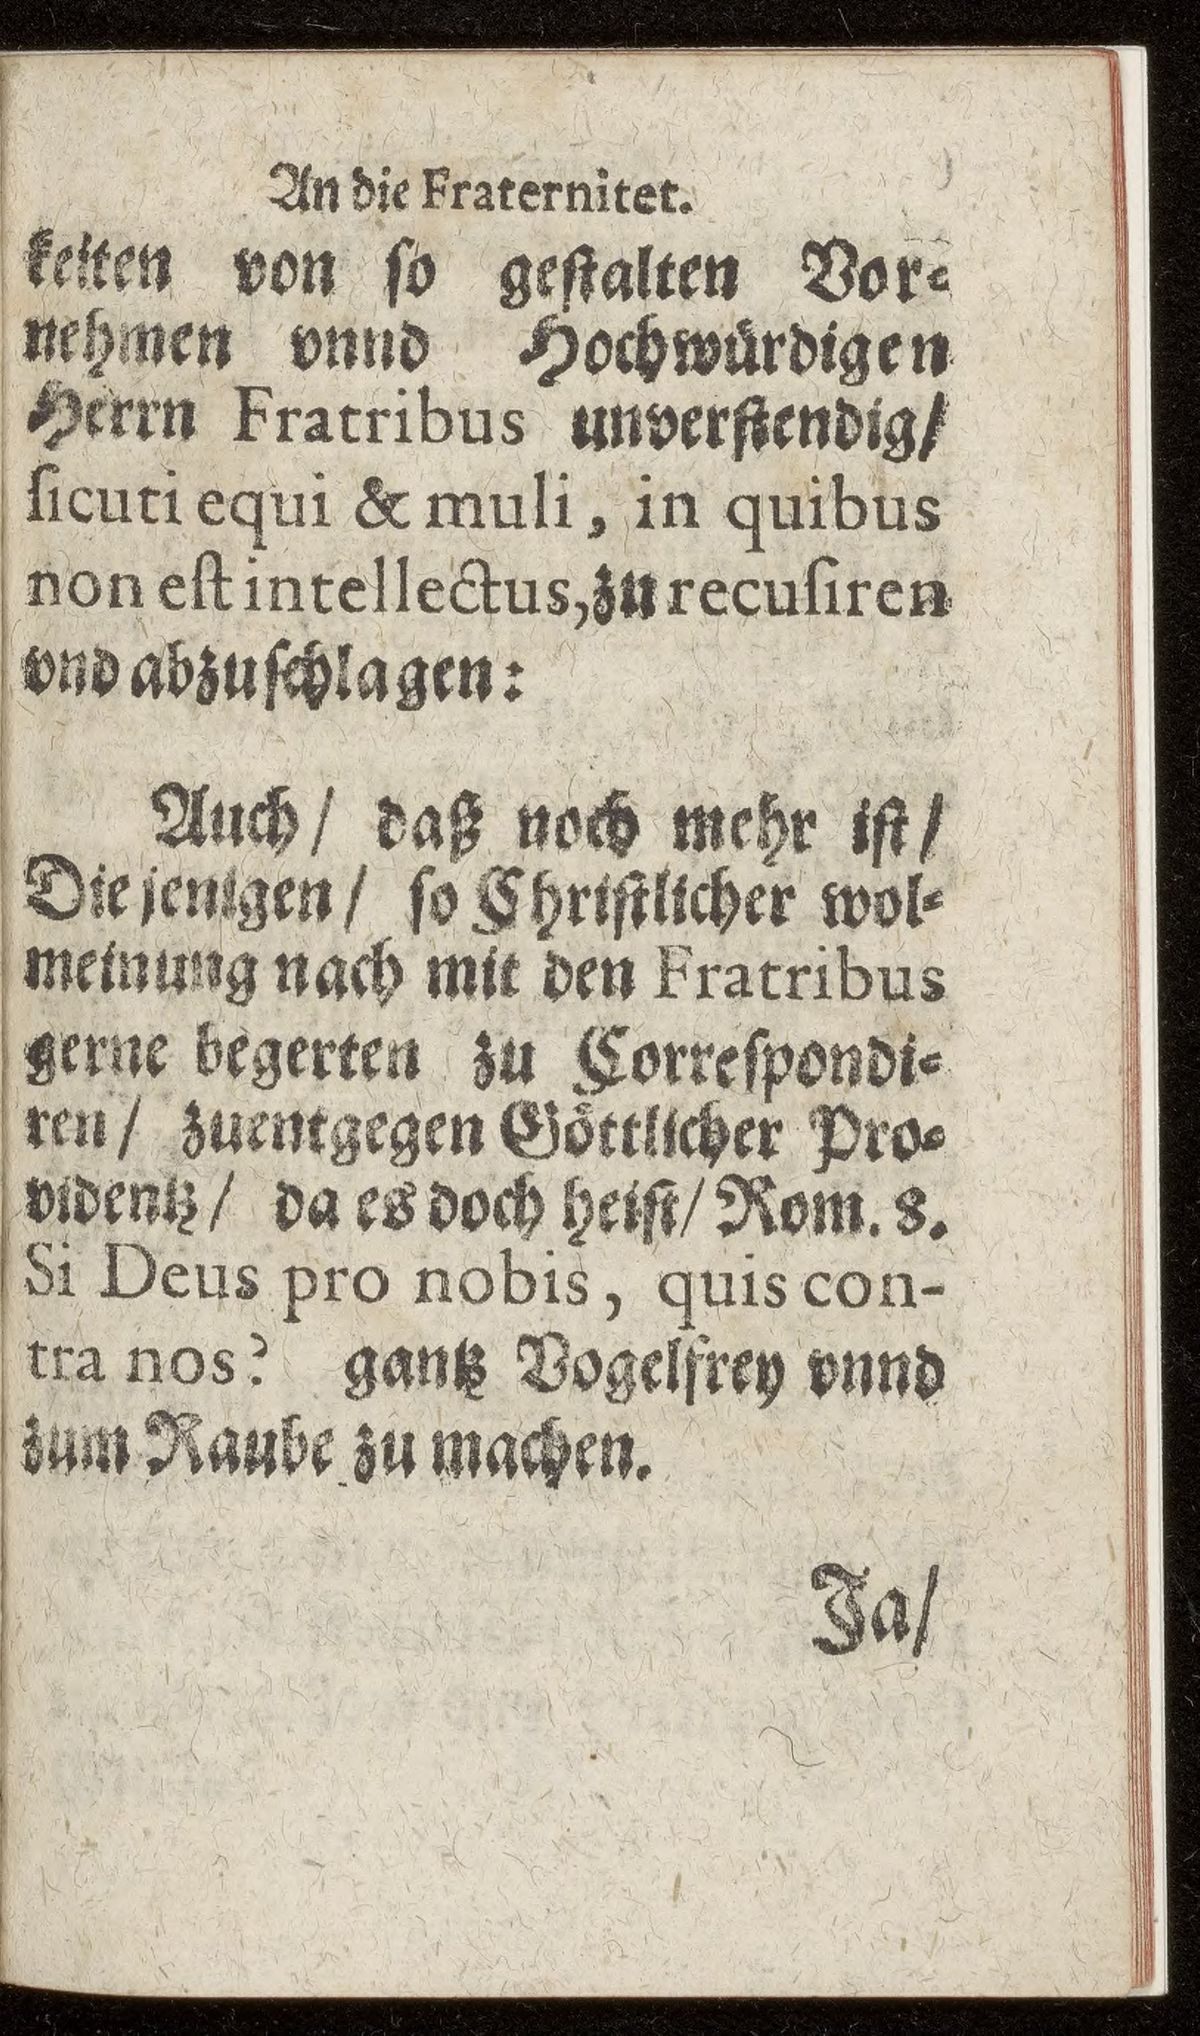 An die Fraternitet.
keiten von so gestalten Vor⸗
nehmen vnnd Hochwürdigen
Herrn Fratribus unverstendig/
ſicuti equi & muli, in quibus
non eſt intellectus, zu recuſiren
vnd abzuſchlagen:
Auch/ daß noch mehr iſt/
Die jenigen/ ſo Chriſtlicher wol⸗
meinung nach mit den Fratribus
gerne begerten zu Correſpondi⸗
ren/ zuentgegen Göttlicher Pro⸗
videntz/ da es doch heiſt/ Rom. 8.
Si Deus pro nobis, quis con-
tra nos? gantz Vogelfrey vnnd
zum Raube zu machen.
Ja/